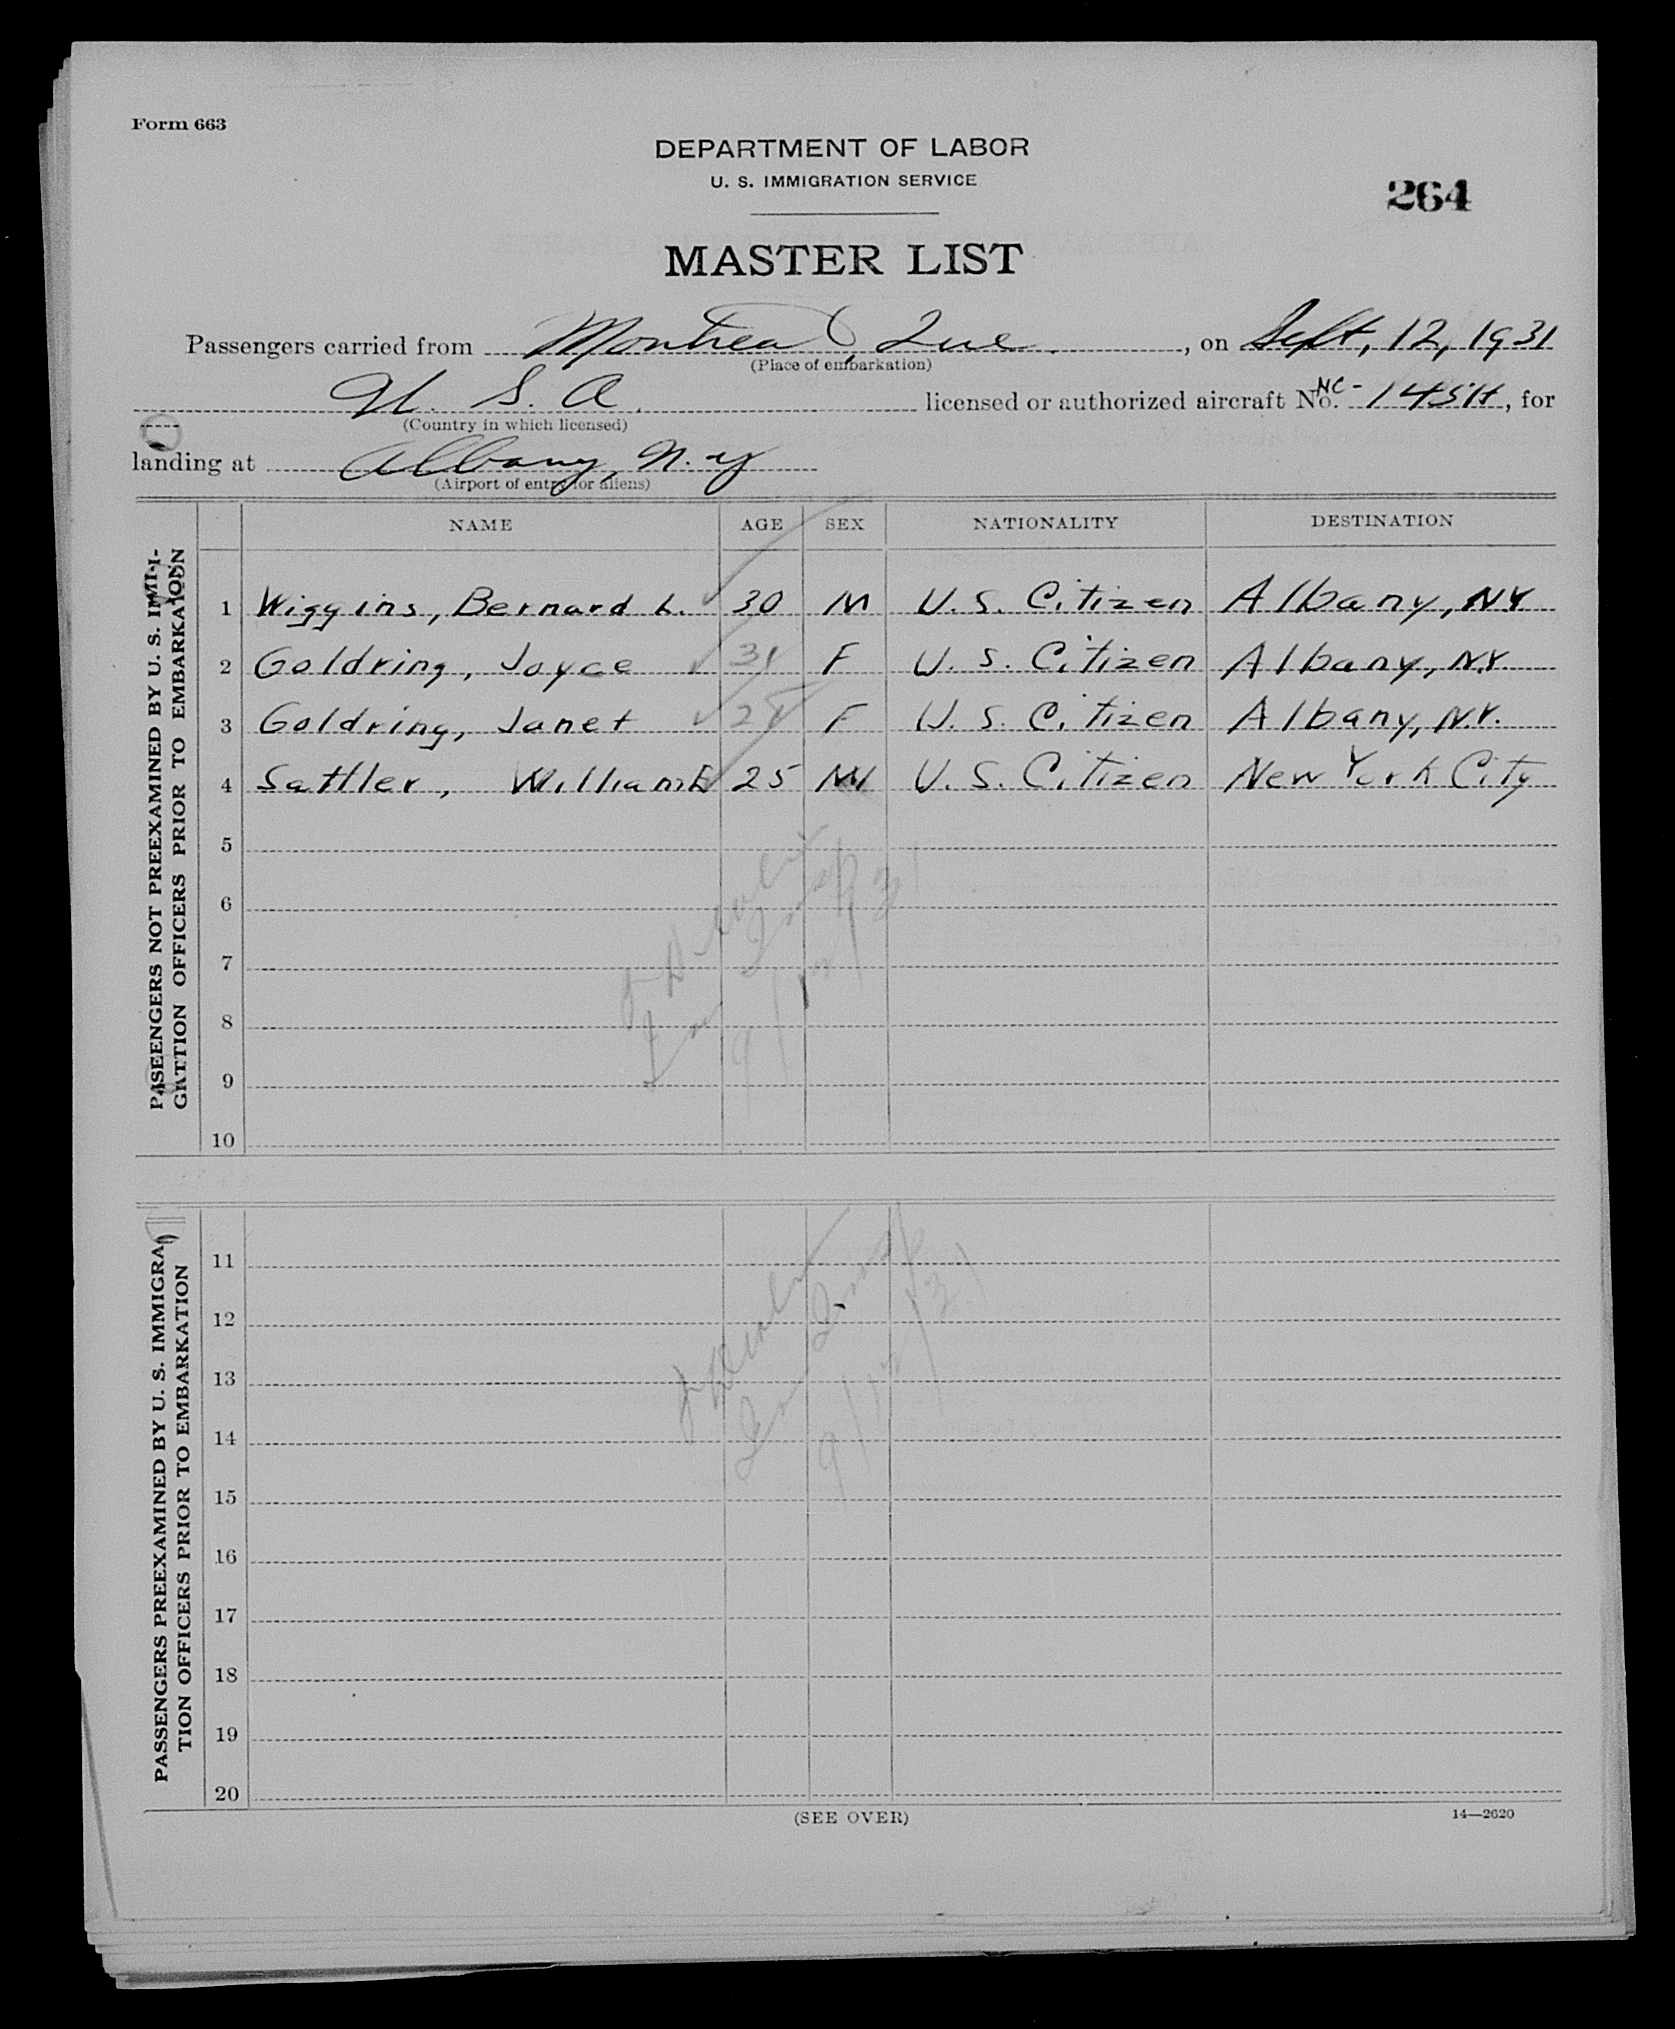 Form 663
DEPARTMENT OF LABOR
U. S. IMMIGRATION SERVICE
264
MASTER LIST
Passengers carried from Montreal Que. , on Sept, 12, 1931
(Place of embarkation)
U. S. A. licensed or authorized aircraft No. NC-145H, for
(Country in which licensed)
landing at Albany, N. Y
(Airport of entry for aliens)
NAME AGE SEX NATIONALITY DESTINATION
PASSENGERS NOT PREEXAMINED BY U. S. IMMI-
GRATION OFFICERS PRIOR TO EMBARKATION
1 Wiggins, Bernard L. 30 M U. S. Citizen Albany, NY
2 Goldring, Joyce 31 F U. S. Citizen Albany, N.Y.
3 Goldring, Janet 28 F U. S. Citizen Albany, N.Y.
4 Sattler, William E 25 M U. S. Citizen New York City
5
6
7
8
9
10
9/12/31
PASSENGERS PREEXAMINED BY U. S. IMMIGRA
TION OFFICERS PRIOR TO EMBARKATION
11
12
13
14
15
16
17
18
19
20
9/12/31
(SEE OVER)
14—2620